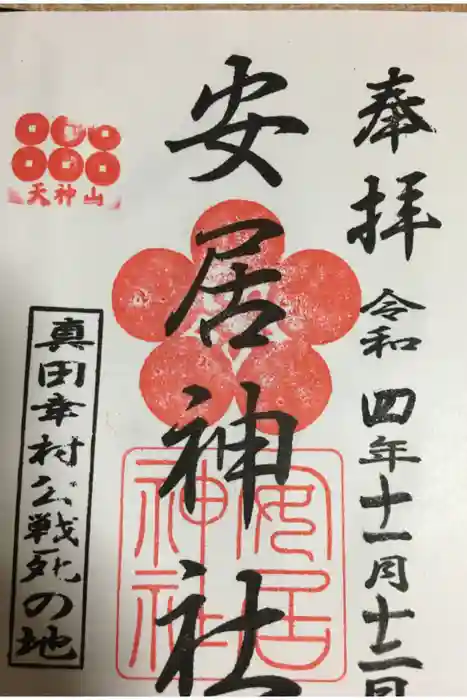 奉拝
令和四年十一月十二日
安居神社
天神山
真田幸村公戦死の地
安居
神社